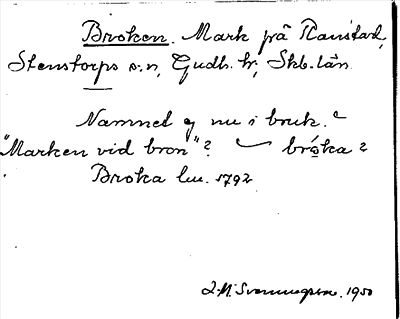 Broken. Mark på Ranstad,
Stenstorps s:n, Gudh. hr, Skb. län
Namnet ej nu i bruk.
"Marken vid bron"? bróka?
Broka lu. 1792
1950